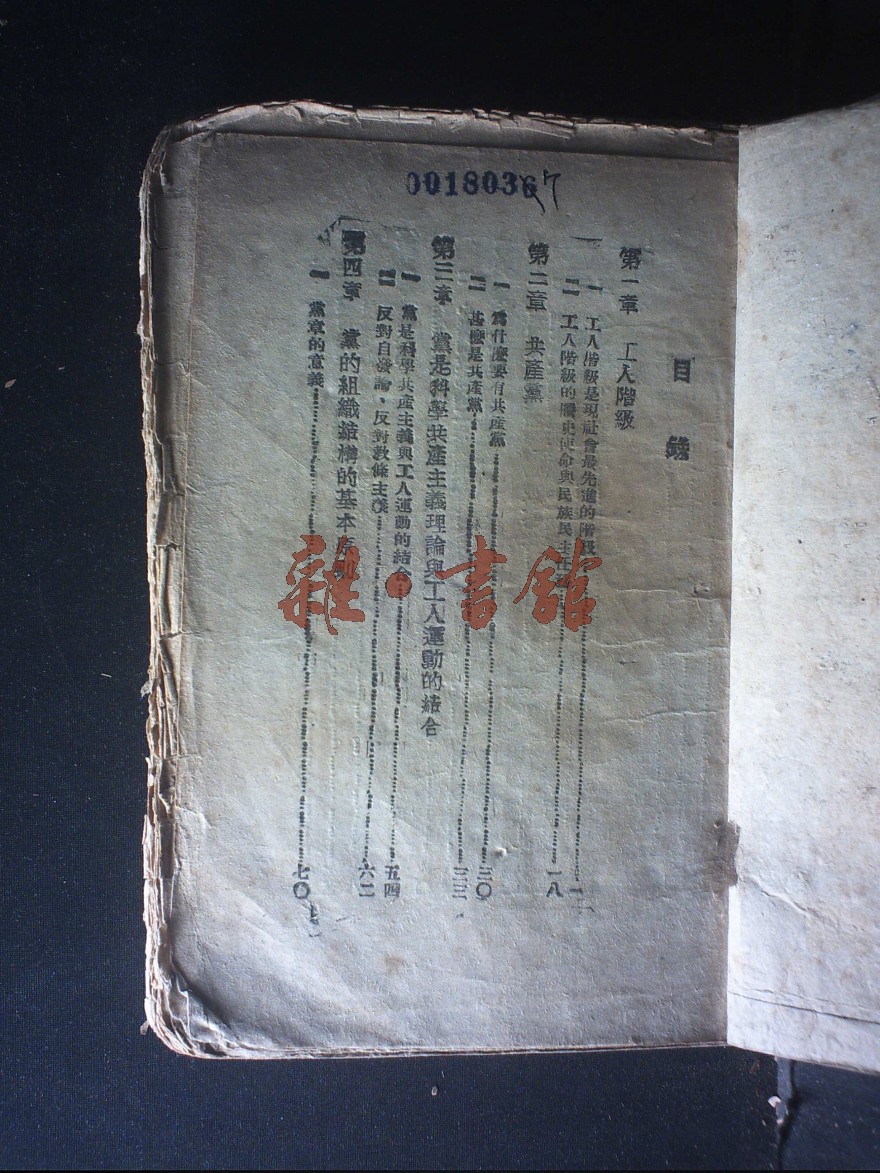 00180367
目錄
第一章 工人階級
一 工人階級是現社會最先進的階級
二 工人階級的歷史使命與民族民主 一八
第二章 共產黨
一 爲什麼要有共產黨 三〇
二 甚麼是共產黨 三三
第三章 黨是科學共產主義理論與工人運動的結合
一 黨是科學共產主義與工人運動的結合 五四
二 反對自發論、反對教條主義 六二
第四章 黨的組織結構的基本原則
一 黨章的意義 七〇
雜·書館